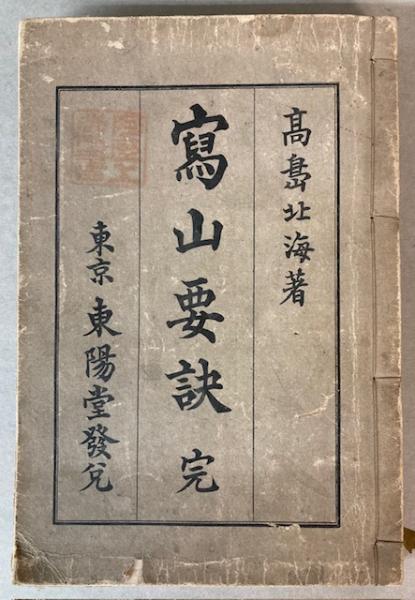 高島北海著
寫山要訣 完
東京 東陽堂發兌